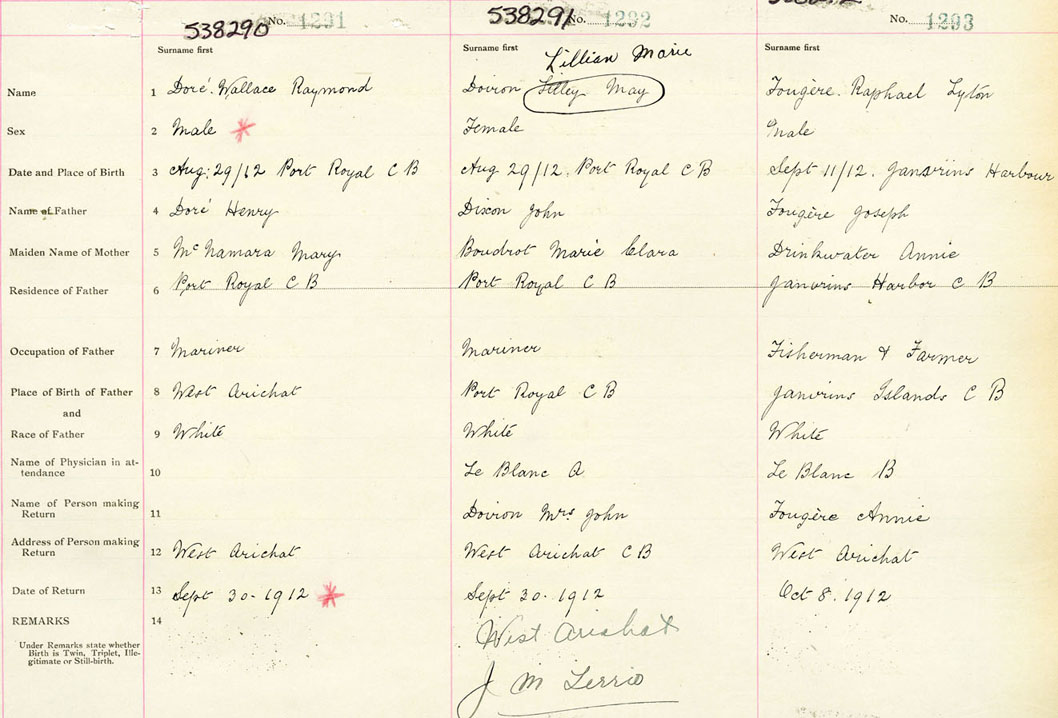 538290 No. 1291 538291 No. 1292 No. 1293
Surname first Surname first Surname first
Lillian Marie
Name 1 Doré. Wallace Raymond Doiron Lilley May Fougère. Raphael Lyton
Sex 2 Male Female Male
Date and Place of Birth 3 Aug. 29/12 Port Royal C B Aug 29/12. Port Royal C B Sept 11/12. Janvrins Harbour
Name of Father 4 Doré Henry Dixon John Fougère Joseph
Maiden Name of Mother 5 McNamara Mary Boudrot Marie Clara Drinkwater Annie
Residence of Father 6 Port Royal C B Port Royal C B Janvrins Harbor C B
Occupation of Father 7 Mariner Mariner Fisherman & Farmer
Place of Birth of Father 8 West Arichat Port Royal C B Janvrins Islands C B
and
Race of Father 9 White White White
Name of Physician in at-
tendance 10 Le Blanc A Le Blanc B
Name of Person making
Return 11 Doiron Mrs John Fougère Annie
Address of Person making
Return 12 West Arichat West Arichat C B West Arichat
Date of Return 13 Sept 30-1912 Sept 30-1912 Oct 8. 1912
REMARKS 14 West Arichat
Under Remarks state whether
Birth is Twin, Triplet, Ille-
gitimate or Still-birth.
J M Terrio